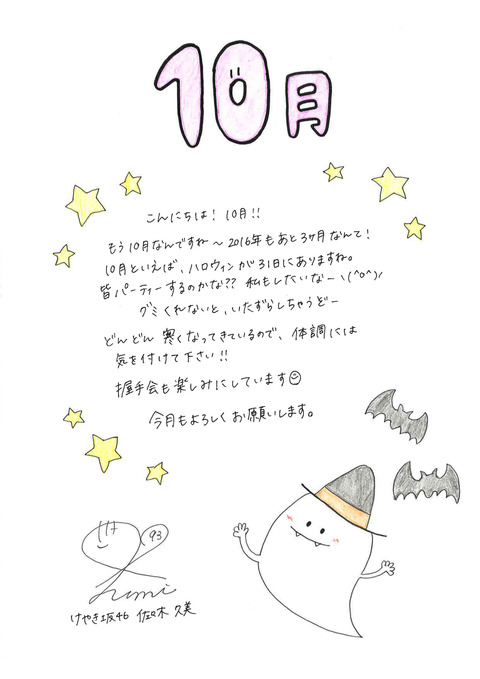 10月
こんにちは! 10月!!
もう10月なんですね〜2016年もあと3ヶ月なんて!
10月といえば、ハロウィンが31日にありますね。
皆パーティーするのかな?? 私もしたいなーヽ(^o^)ﾉ
グミくれないと、いたずらしちゃうぞー
どんどん寒くなってきているので、体調には
気を付けて下さい!!
握手会も楽しみにしています☺
今月もよろしくお願いします。
93
kumi
けやき坂46 佐々木久美